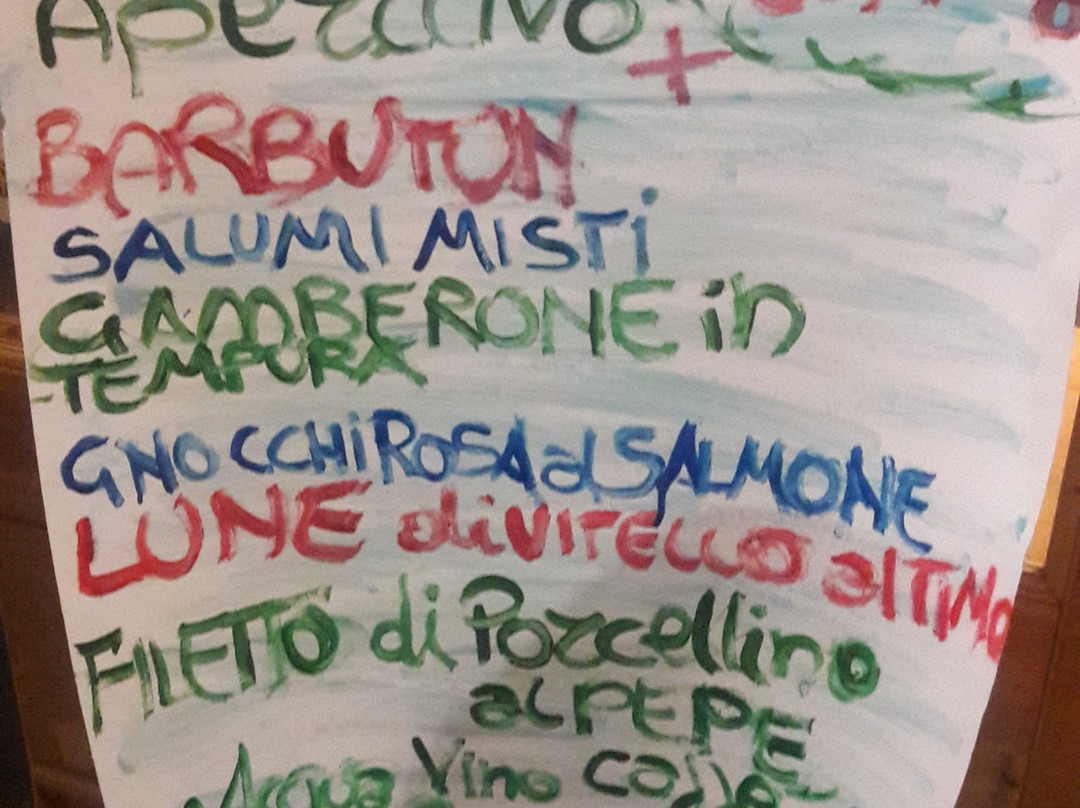 Aperitivo +
BARBUTON
SALUMI MISTi
GAMBERONE in
TEMPURA
GNOCCHi ROSA al SALMONE
LUNE di VITELLO al TIMO
FILETTO di Porcellino
al PEPE
Acqua Vino Caffe